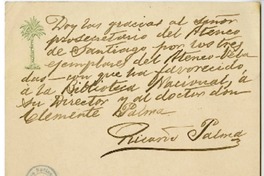 Doy las gracias al Señor
prosecretario del Ateneo
de Santiago por los tres
ejemplares del Ateneo
das con que ha favorecido
a la Biblioteca Nacional, a
su Director y al doctor don
Clemente Palma
Ricardo Palma